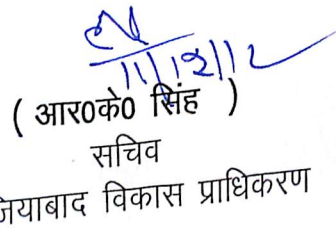 11/12/12
( आर0के0 सिंह )
सचिव
जियाबाद विकास प्राधिकरण